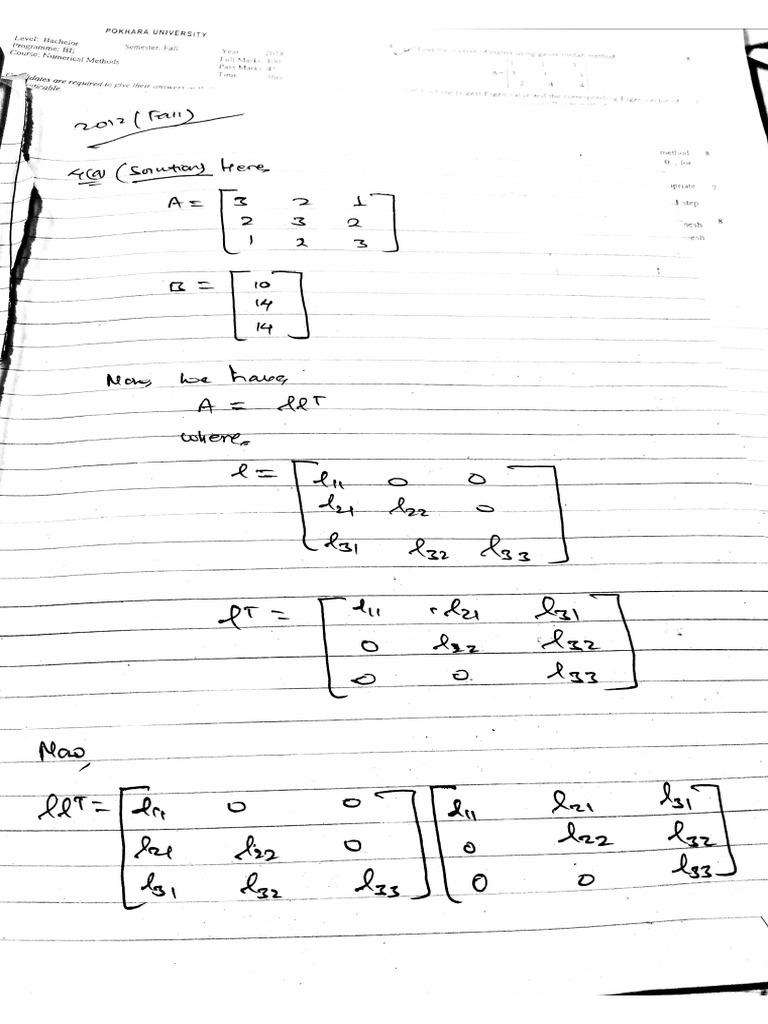 POKHARA UNIVERSITY
Level: Bachelor Semester: Fall Year 2018
Programme: BE Full Marks: 100
Course: Numerical Methods Pass Marks: 45
Time 3hrs
Candidates are required to give their answers
2012 (Fall)
4(a) (Solution) Here,
A = [ 3 2 1
2 3 2
1 2 3 ]
B = [ 10
14
14 ]
Now, we have,
A = llᵀ
where,
l = [ l11 0 0
l21 l22 0
l31 l32 l33 ]
lᵀ = [ l11 l21 l31
0 l22 l32
0 0 l33 ]
Now,
llᵀ = [ l11 0 0 ] [ l11 l21 l31 ]
l21 l22 0 0 l22 l32
l31 l32 l33 0 0 l33